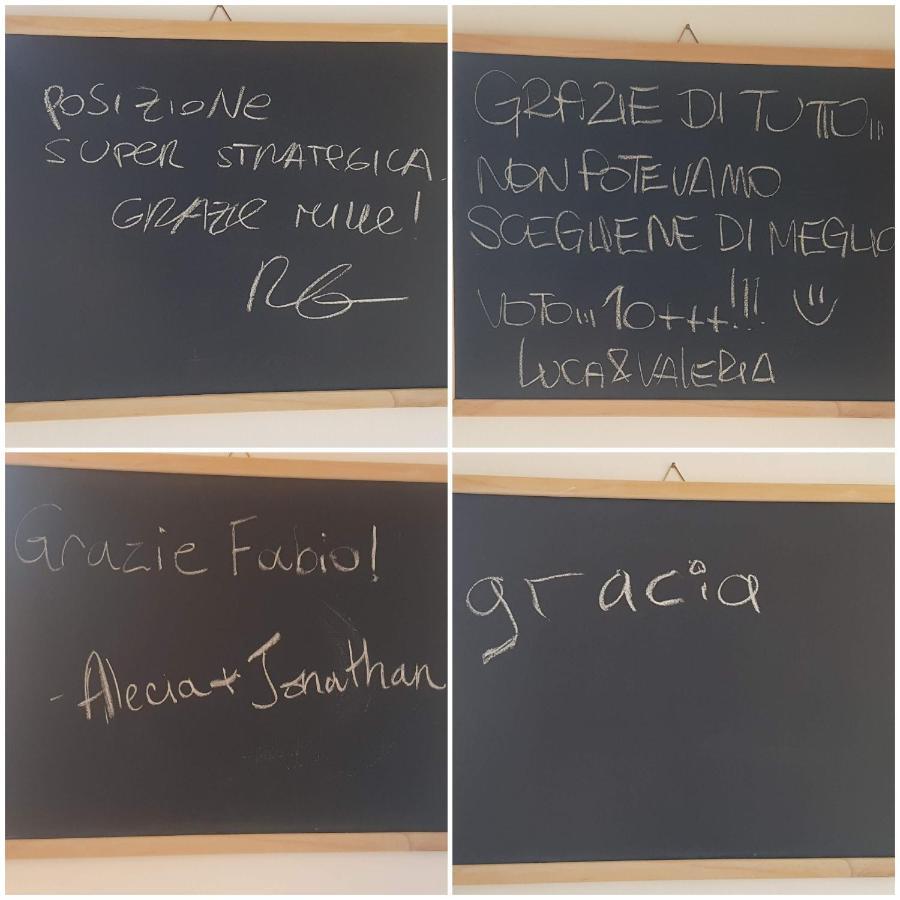 POSIZIONE
SUPER STRATEGICA.
GRAZIE mille!
RG
GRAZIE DI TUTTO...
NON POTEVAMO
SCEGLIERNE DI MEGLIO
VOTO... 10+++!!!
LUCA&VALERIA
Grazie Fabio!
- Alecia + Jonathan
gracia